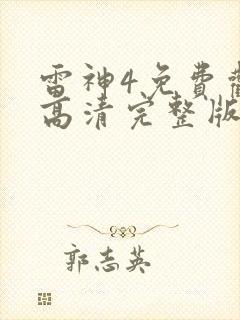 雷神4免費
高清完整版
郭志英